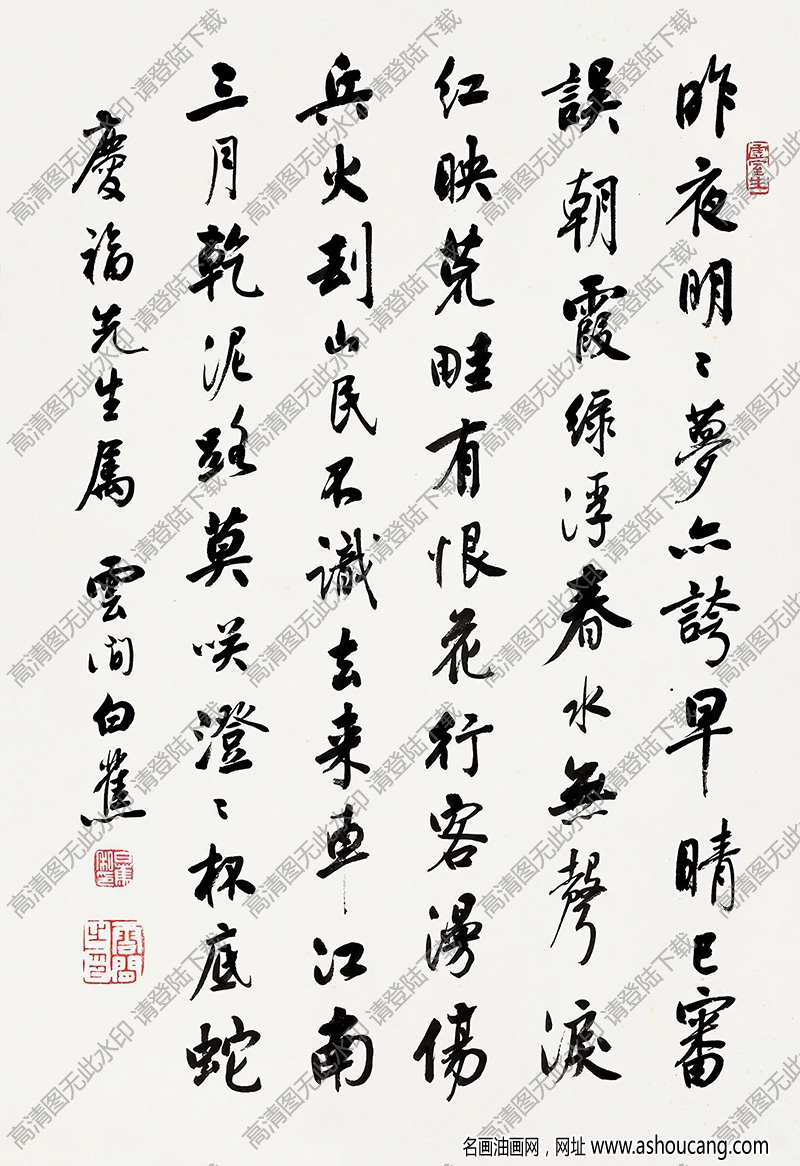 昨夜明〻夢亦誇早晴已審
誤朝霞綠浮春水無聲淚
紅映荒畦有恨花行客漫傷
兵火刮山民不識去來車江南
三月乾泥路莫咲澄〻杯底蛇
慶福先生屬 雲間白蕉
高清图无此水印 请登陆下载
名画油画网，网址 www.ashoucang.com